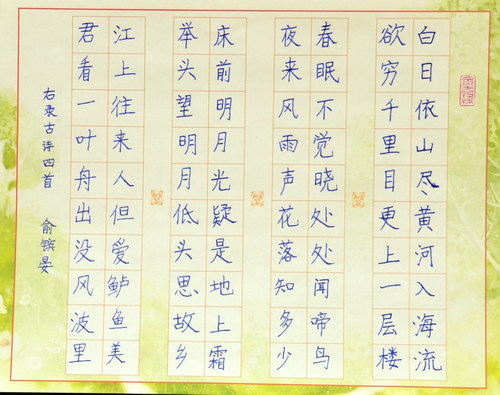 白日依山尽黄河入海流
欲穷千里目更上一层楼
春眠不觉晓处处闻啼鸟
夜来风雨声花落知多少
床前明月光疑是地上霜
举头望明月低头思故乡
江上往来人但爱鲈鱼美
君看一叶舟出没风波里
右录古诗四首 俞镔晏